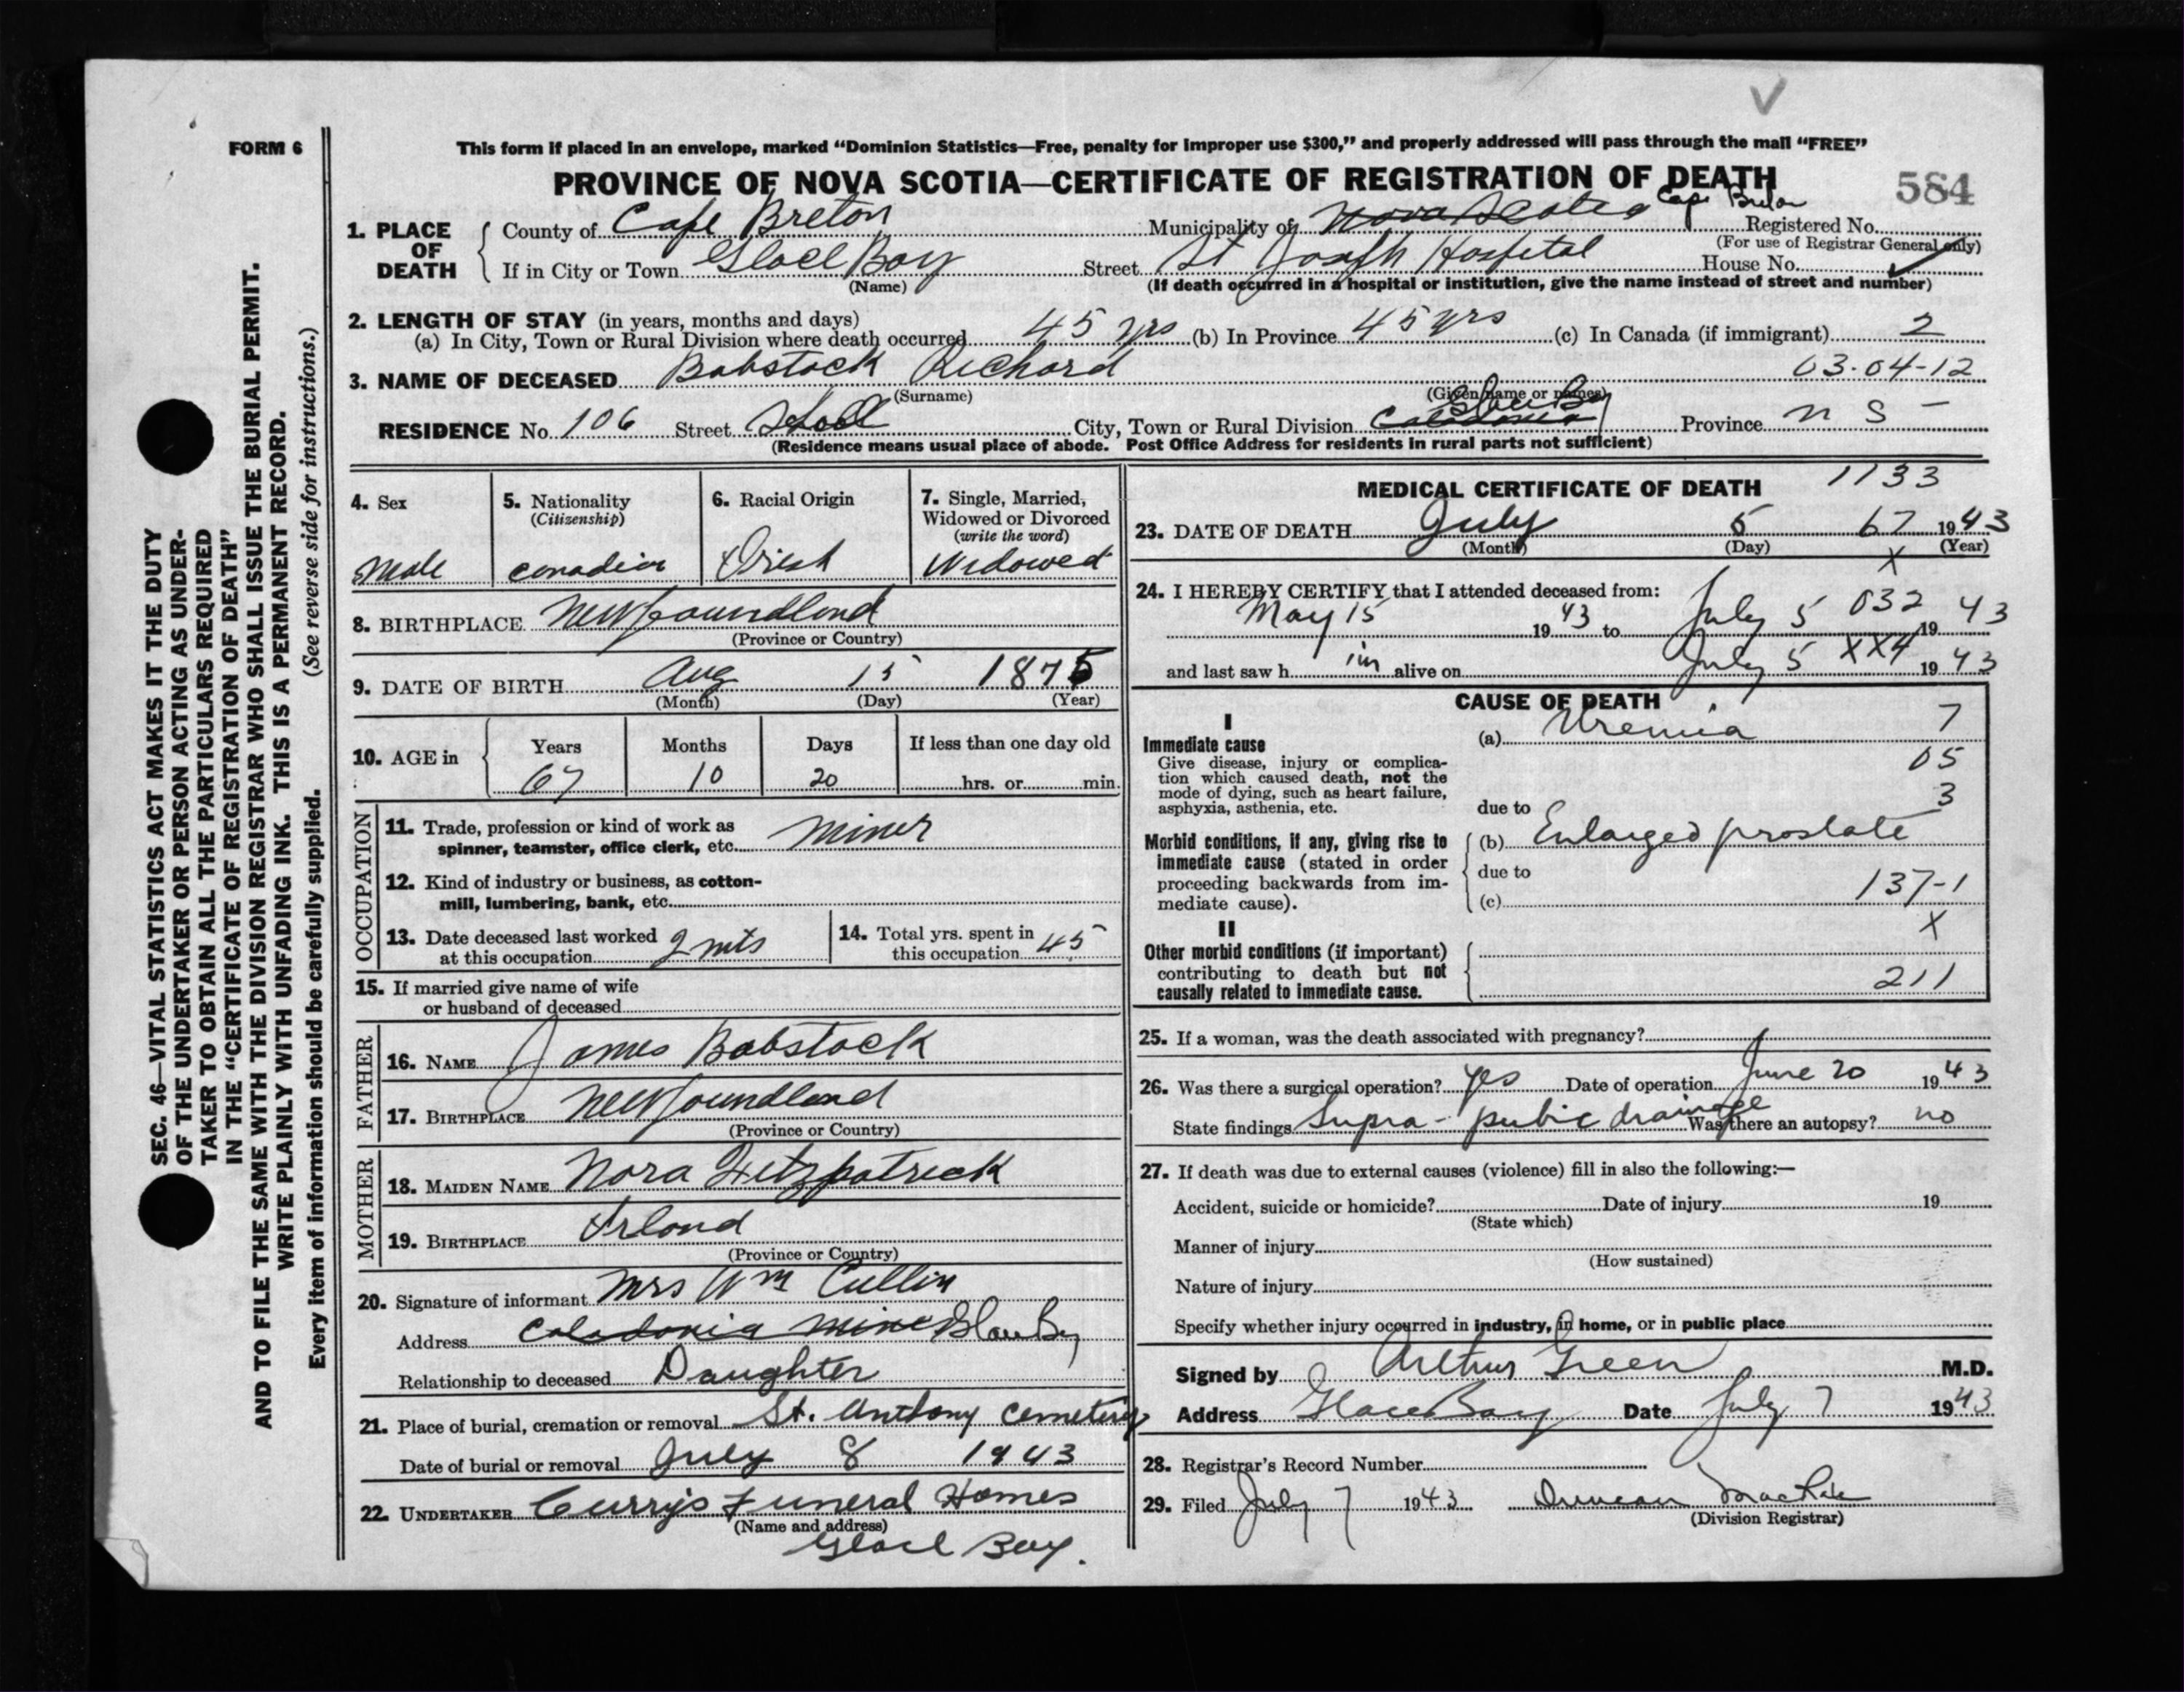 FORM 6
This form if placed in an envelope, marked “Dominion Statistics—Free, penalty for improper use $300,” and properly addressed will pass through the mail “FREE”
PROVINCE OF NOVA SCOTIA—CERTIFICATE OF REGISTRATION OF DEATH 584
1. PLACE OF DEATH County of Cape Breton Municipality of Nova Scotia Cape Breton Registered No.
(For use of Registrar General only)
If in City or Town Glace Bay Street St Joseph Hospital House No.
(Name) (If death occurred in a hospital or institution, give the name instead of street and number)
2. LENGTH OF STAY (in years, months and days)
(a) In City, Town or Rural Division where death occurred 45 yrs (b) In Province 45 yrs (c) In Canada (if immigrant) 2
3. NAME OF DECEASED Babstock Richard 03-04-12
(Surname) (Given name or names)
RESIDENCE No. 106 Street City, Town or Rural Division Caledonia Glace Bay Province N S -
(Residence means usual place of abode. Post Office Address for residents in rural parts not sufficient)
4. Sex Male
5. Nationality (Citizenship) Canadian
6. Racial Origin Irish
7. Single, Married, Widowed or Divorced (write the word) Widowed
8. BIRTHPLACE Newfoundland
(Province or Country)
9. DATE OF BIRTH Aug 15 1875
(Month) (Day) (Year)
10. AGE in Years 67 Months 10 Days 20 If less than one day old hrs. or min.
OCCUPATION
11. Trade, profession or kind of work as spinner, teamster, office clerk, etc. Miner
12. Kind of industry or business, as cotton-mill, lumbering, bank, etc.
13. Date deceased last worked at this occupation 2 mts
14. Total yrs. spent in this occupation 45
15. If married give name of wife or husband of deceased
FATHER
16. NAME James Babstock
17. BIRTHPLACE Newfoundland
(Province or Country)
MOTHER
18. MAIDEN NAME Nora Fitzpatrick
19. BIRTHPLACE Irland
(Province or Country)
20. Signature of informant Mrs Wm Cullin
Address Caledonia Mines Glace Bay
Relationship to deceased Daughter
21. Place of burial, cremation or removal St. Anthony Cemetery
Date of burial or removal July 8 1943
22. UNDERTAKER Curry's Funeral Homes
(Name and address)
Glace Bay.
MEDICAL CERTIFICATE OF DEATH 1133
23. DATE OF DEATH July 5 67 1943
(Month) (Day) (Year)
X
24. I HEREBY CERTIFY that I attended deceased from:
May 15 1943 to July 5 032 1943
and last saw him alive on July 5 XX4 1943
CAUSE OF DEATH
I
Immediate cause
Give disease, injury or complication which caused death, not the mode of dying, such as heart failure, asphyxia, asthenia, etc.
(a) Uremia 7
05
3
due to
Morbid conditions, if any, giving rise to immediate cause (stated in order proceeding backwards from immediate cause).
(b) Enlarged prostate
due to
(c) 137-1
X
II
Other morbid conditions (if important) contributing to death but not causally related to immediate cause.
211
25. If a woman, was the death associated with pregnancy?
26. Was there a surgical operation? Yes Date of operation June 20 1943
State findings Supra-pubic drainage Was there an autopsy? no
27. If death was due to external causes (violence) fill in also the following:—
Accident, suicide or homicide? Date of injury 19
(State which)
Manner of injury
(How sustained)
Nature of injury
Specify whether injury occurred in industry, in home, or in public place
Signed by Arthur Green M.D.
Address Glace Bay Date July 7 1943
28. Registrar's Record Number
29. Filed July 7 1943 Duncan
(Division Registrar)
SEC. 46—VITAL STATISTICS ACT MAKES IT THE DUTY
OF THE UNDERTAKER OR PERSON ACTING AS UNDER-
TAKER TO OBTAIN ALL THE PARTICULARS REQUIRED
IN THE “CERTIFICATE OF REGISTRATION OF DEATH”
AND TO FILE THE SAME WITH THE DIVISION REGISTRAR WHO SHALL ISSUE THE BURIAL PERMIT.
WRITE PLAINLY WITH UNFADING INK. THIS IS A PERMANENT RECORD.
Every item of information should be carefully supplied. (See reverse side for instructions.)